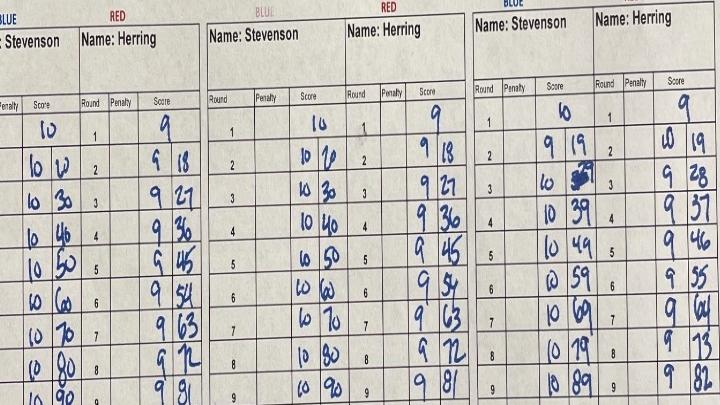 BLUE RED BLUE RED BLUE
: Stevenson Name: Herring Name: Stevenson Name: Herring Name: Stevenson Name: Herring
Penalty Score Round Penalty Score Round Penalty Score Round Penalty Score Round Penalty Score Round Penalty Score
10 1 9 1 10 1 9 1 10 1 9
10 20 2 9 18 2 10 20 2 9 18 2 9 19 2 10 19
10 30 3 9 27 3 10 30 3 9 27 3 10 29 3 9 28
10 40 4 9 36 4 10 40 4 9 36 4 10 39 4 9 37
10 50 5 9 45 5 10 50 5 9 45 5 10 49 5 9 46
10 60 6 9 54 6 10 60 6 9 54 6 10 59 6 9 55
10 70 7 9 63 7 10 70 7 9 63 7 10 69 7 9 64
10 80 8 9 72 8 10 80 8 9 72 8 10 79 8 9 73
10 90 9 9 81 9 10 90 9 9 81 9 10 89 9 9 82